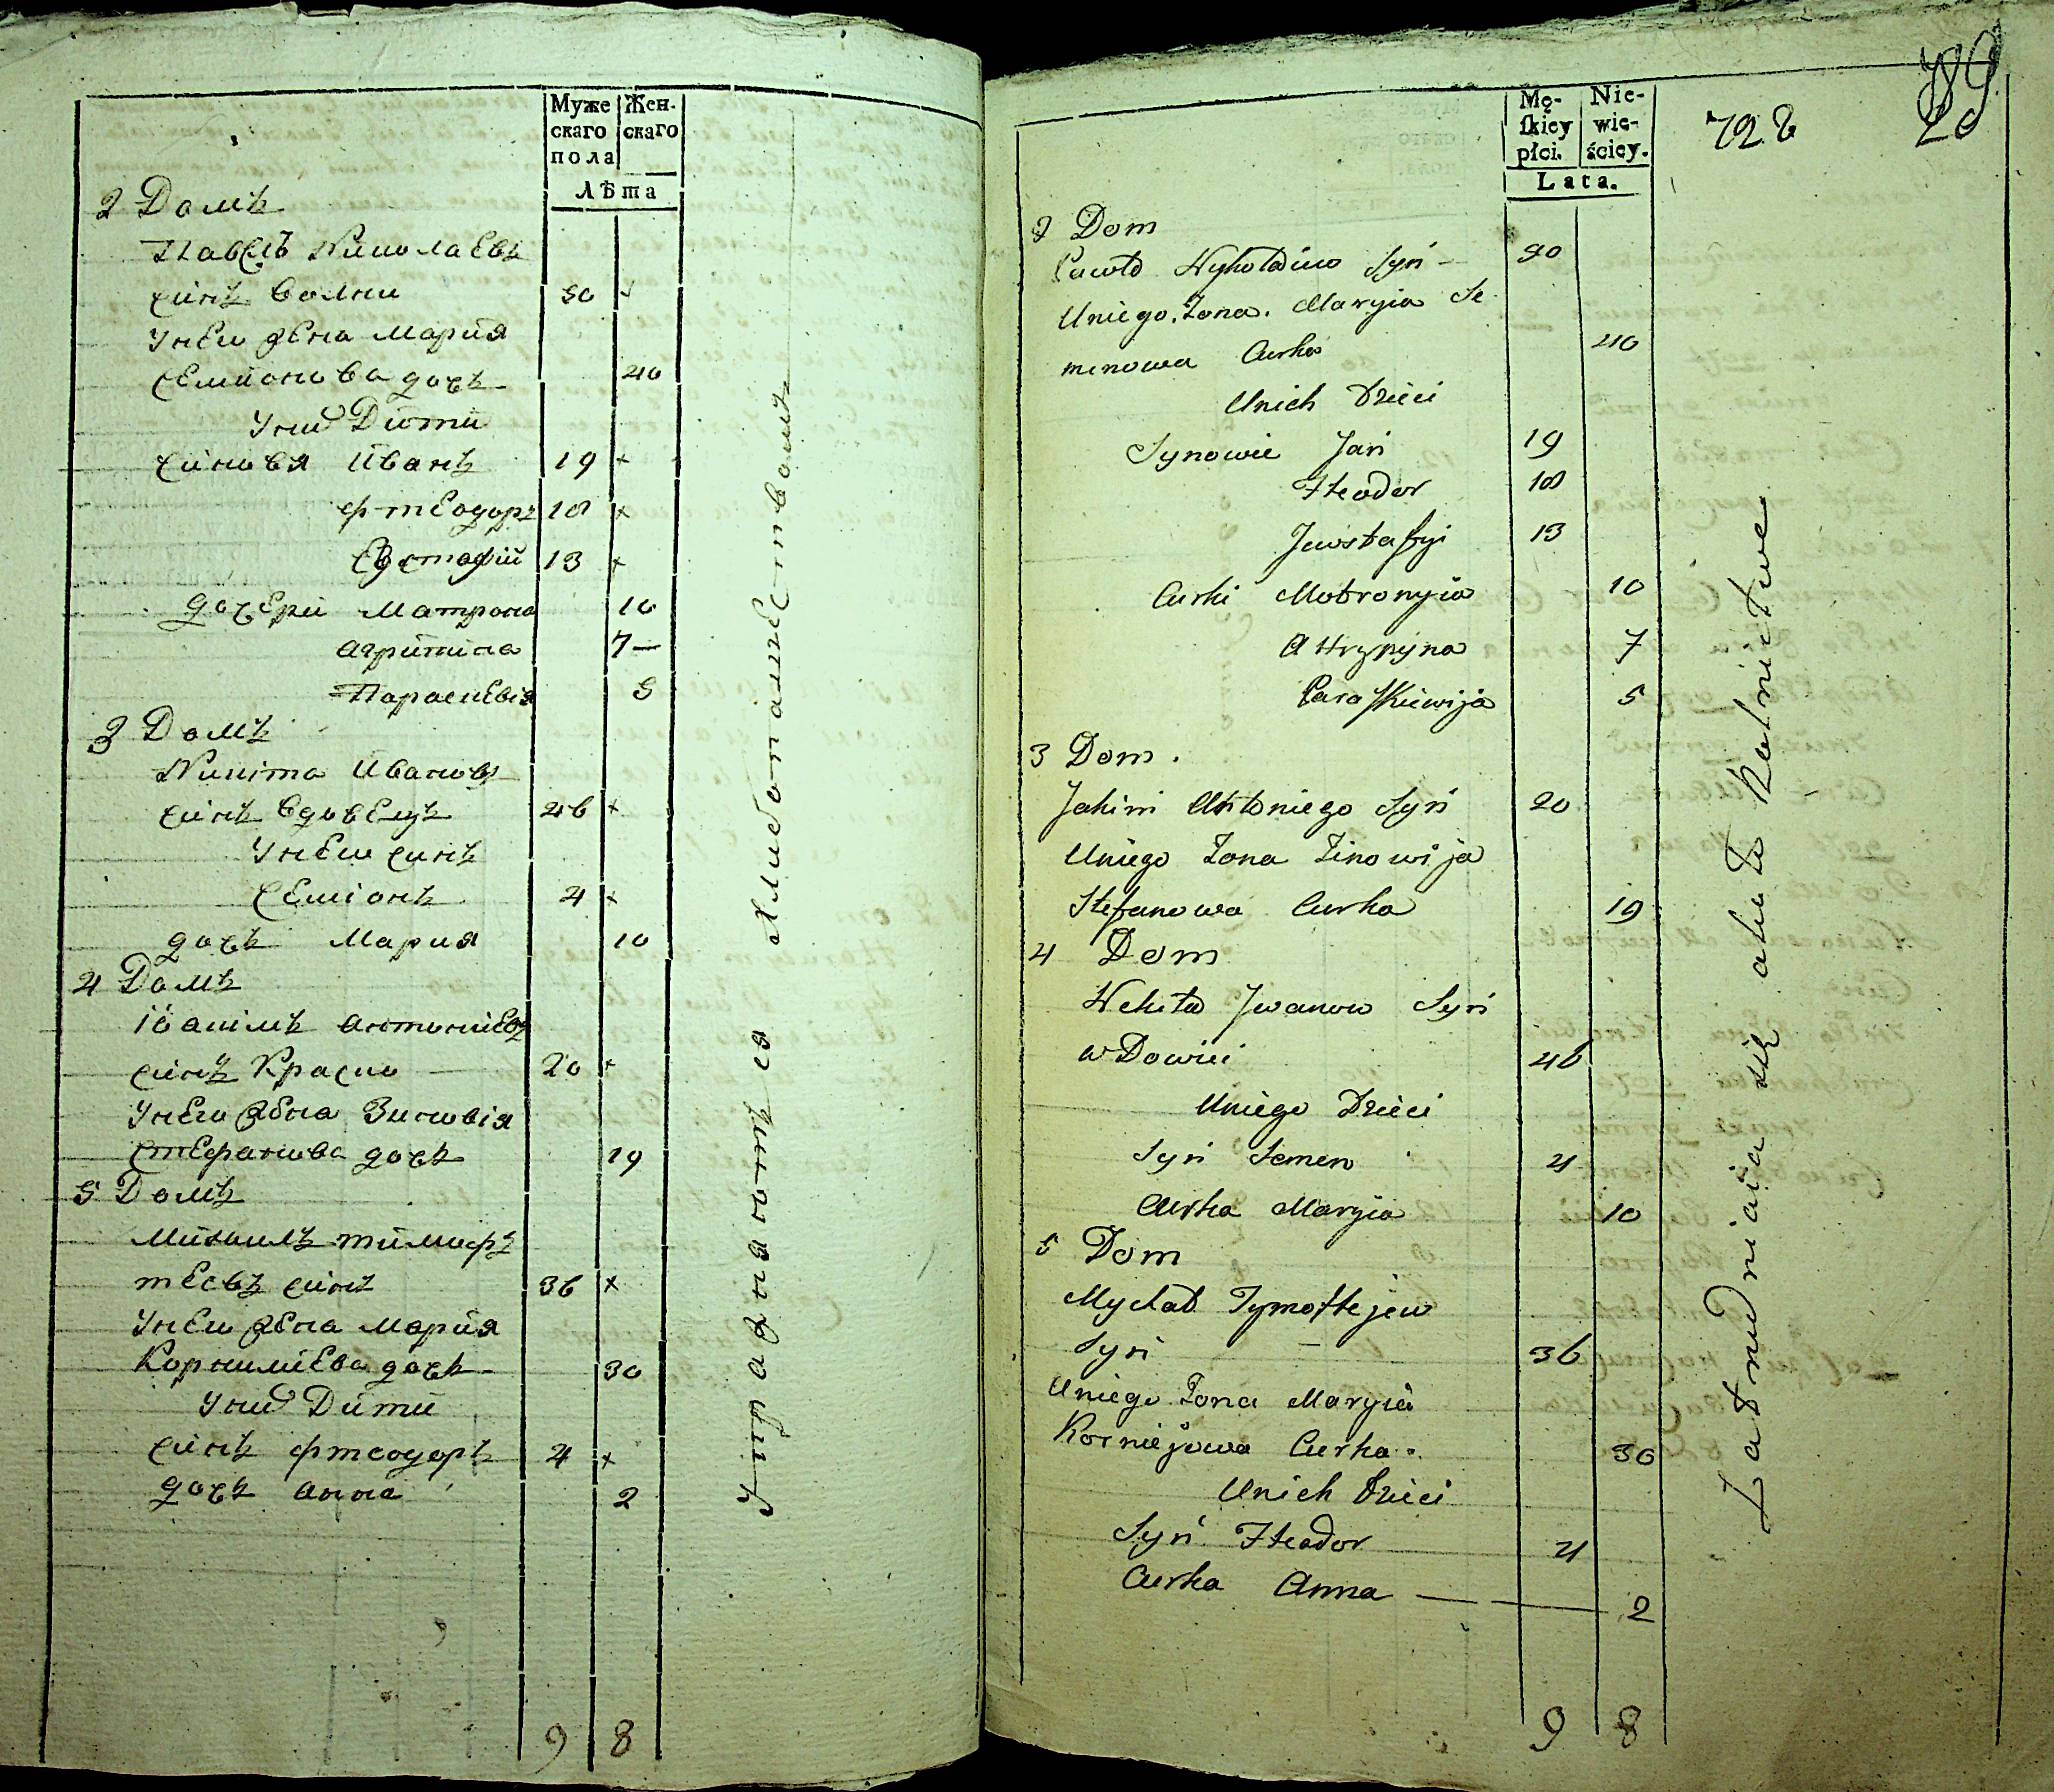 Муже
скаго
пола
Жен-
скаго
Лѣта
2 Домъ
Павелъ Николаевъ
синъ Волни 50
Унего жена Мария
Семионова дочь 40
Уних Дѣти
синовя Иванъ 19
Фтеодоръ 18
Евстафий 13
дочери Матрона 10
Агрипина 7
Параскевія 5
3 Домъ
Никита Ивановъ
синъ вдовецъ 46
Унего синъ
Семіонъ 4
дочь Мария 10
4 Домъ
Іоакимъ Антониевъ
синъ Красно 20
Унего жена Зиновія
Стефанова дочь 19
5 Домъ
Михаилъ тимоф
теевъ синъ 36
Унего жена Мария
Корнилиева дочь 30
Уних Дити
синъ Фтеодоръ 4
дочь Анна 2
9 8
Упражняютъ ся хлибопашеством
Mę-
skiey
płci.
Nie-
wie-
ściey.
Lata.
722
2 Dom
Pawło Nykołaiow Syn 50
Uniego Zona Maryia Se
menowa Curka 40
Unich Dzieci
Synowie Jan 19
Fteodor 18
Jewstafyi 13
Curki Motronyia 10
Ahrypyna 7
Paraskiewija 5
3 Dom.
Jakim Antoniego Syn 20
Uniego Zona Zinowija
Stefanowa Curka 19
4 Dom
Nekita Jwanow Syn
wDowiec 46
Uniego Dzieci
Syn Semen 4
Curka Maryia 10
5 Dom
Mychał Tymoftejew
Syn 36
Uniego Zona Maryia
Korniejowa Curka 30
Unich Dzieci
Syn Fteodor 4
Curka Anna 2
9 8
Zatrudniaia sie około Rolnictwa